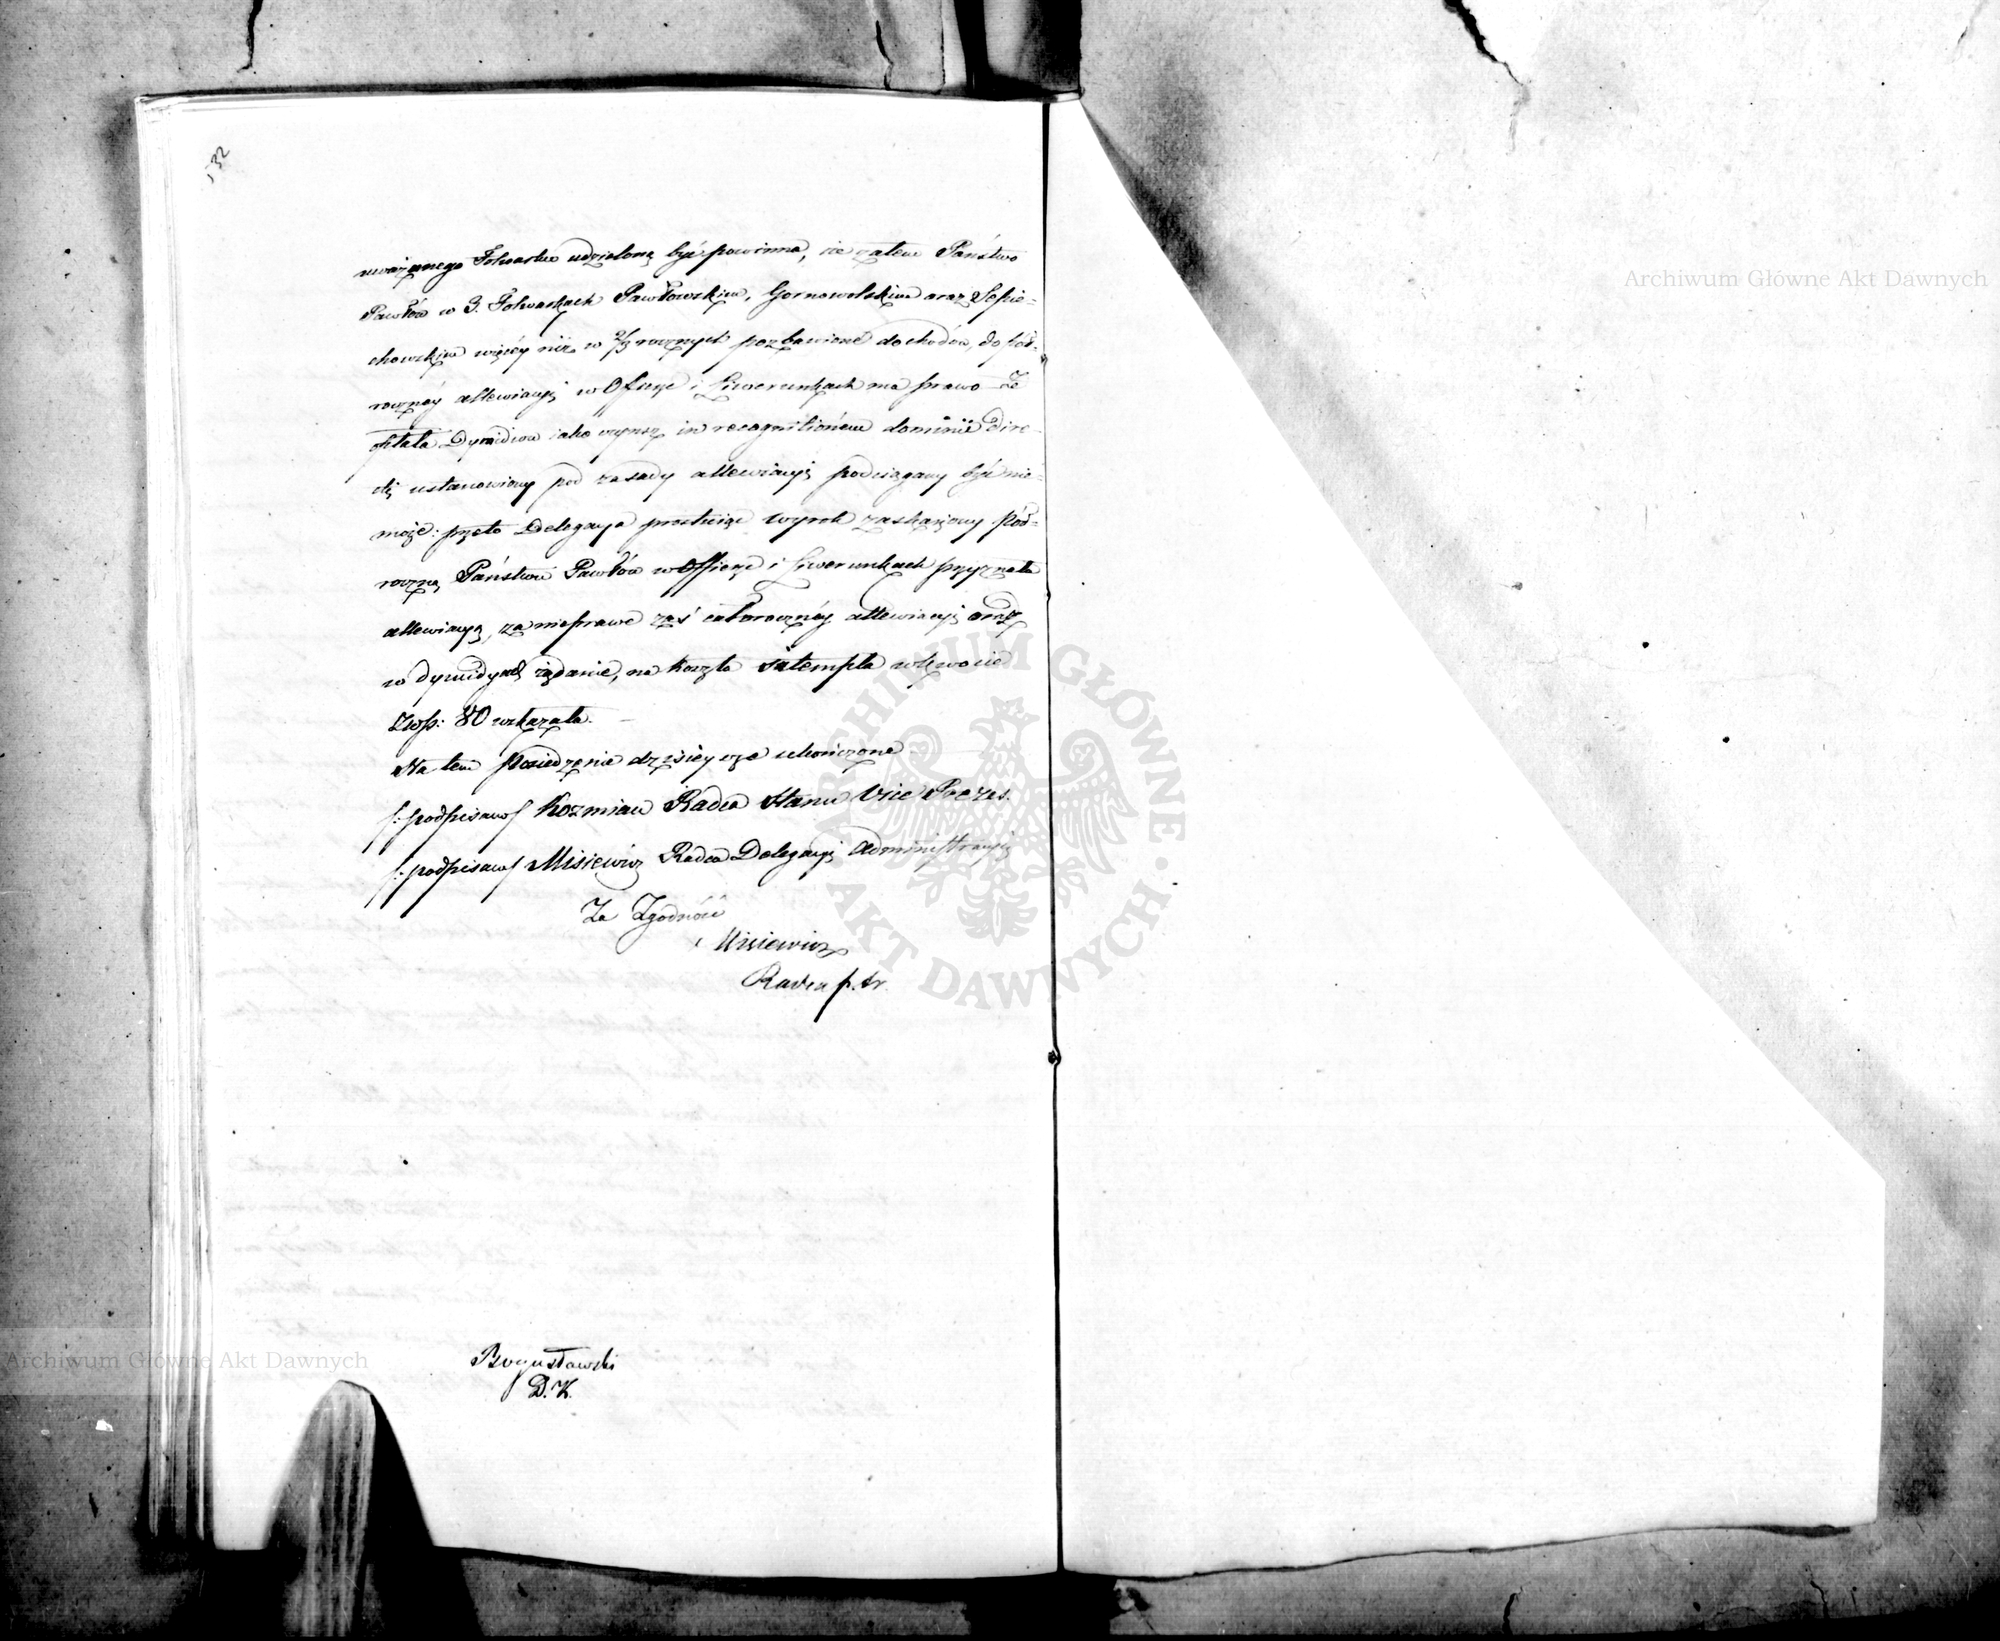 132
uważanego Folwarku udzieloną być powinna, że zatem Państwo
Pawłów w 3. Folwarkach Pawłowskim, Gornowolskim oraz Sepie-
chowskim więcéy niż w 2/3 rocznych pozbawione dochodów, do pół-
rocznéy allewiacyi w Ofierze i Liwerunkach ma prawo Że
opłata Dymidiów jako czynsz in recognitionem dominii dire-
cti ustanowiony pod zasady allewiacyi podciągany być nie-
może: przeto Delegacya prostując wyrok zaskarżony pół-
roczną Państwu Pawłów w Offierze i Liwerunkach przyznała
allewiacyą, za nieprawe zaś całorocznéy allewiacyi oraz
w dymidyach żądanie, na koszta sztempla w kwocie
Złop: 80 wskazała.
Na tem posiedzenie dzisieysze ukończone
/:podpisano/ Kozmian Radca Stanu Vice Prezes.
/:podpisano/ Misiewicz Radca Delegacyi Administracyi
Za Zgodność
Misiewicz
Radca p. tr.
Bogusławski
D. K.
Archiwum Główne Akt Dawnych
Archiwum Główne Akt Dawnych
ARCHIWUM GŁÓWNE AKT DAWNYCH